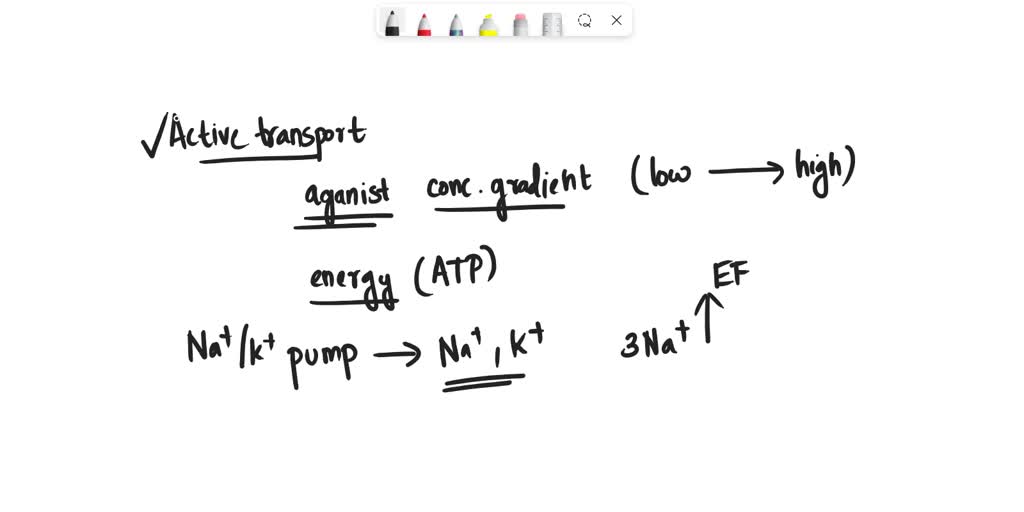 √Active transport
aganist conc. gradient (low → high)
energy (ATP)
EF
Na+/k+ pump → Na+, k+ 3Na+ ↑